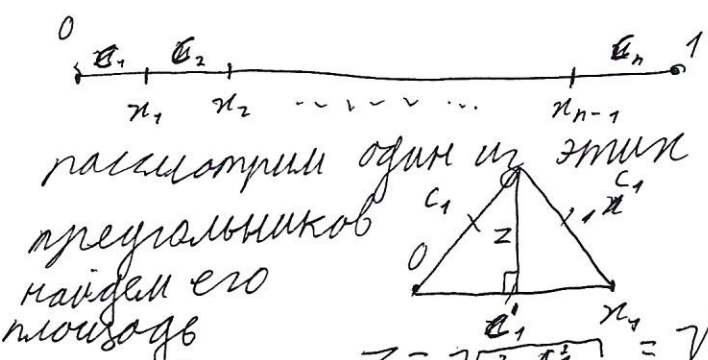 0 c₁ c₂ cₙ 1
x₁ x₂ ... xₙ₋₁
рассмотрим один из этих
треугольников
найдем его
площадь
c₁ z c₁
0 c₁ x₁
z = √ = √